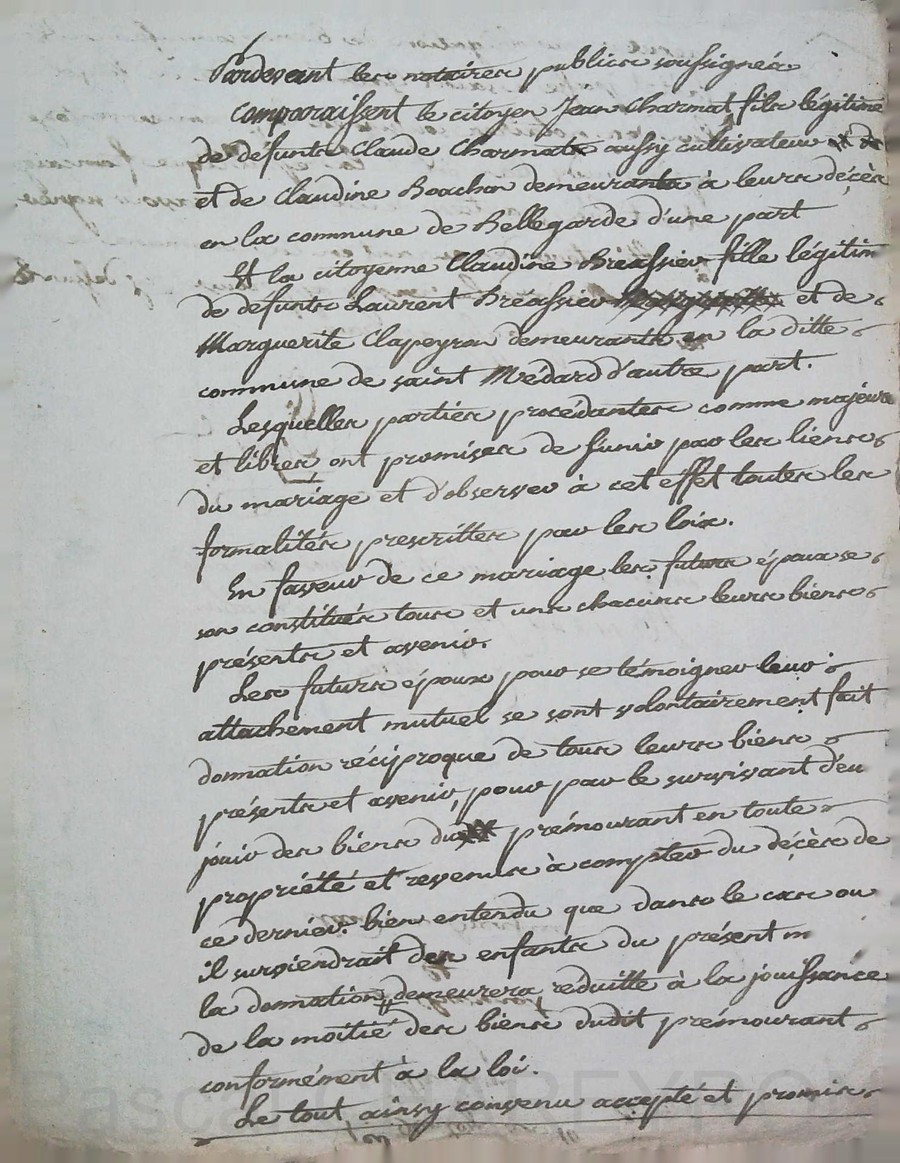 Pardevant les notaires publics soussignés
Comparaissent le citoyen Jean Charmat fils légitime
de défunts Claude Charmat aussy cultivateur
et de Claudine Boachon demeurants à leurs décès
en la commune de Bellegarde d'une part
Et la citoyenne Claudine Bréassier fille légitim
de défunts Laurent Bréassier et de
Marguerite Clapeyron demeurants en la ditte
commune de saint Médard d'autre part.
Lesquelles parties procédantes comme majeurs
et libres ont promises de s'unir par les liens
du mariage et d'observer à cet éffet toutes les
formalités prescrittes par les loix.
En faveur de ce mariage les futurs époux se
son constitués tous et uns chacuns leurs biens
présents et avenir.
Les futurs époux pour se témoigner leur
attachement mutuel se sont volontairement fait
donnation réciproque de tous leurs biens
présents et avenir, pour par le survivant d'eu
jouir des biens du prémourant en toute
propriété et revenus à compter du décès de
ce dernier. bien entendu que dans le cas ou
il surviendrait des enfants du présent m
la donnation demeurera reduitte à la jouissance
de la moitié des biens dudit prémourant
conformément à la loi.
Le tout ainsy convenu accepté et promis